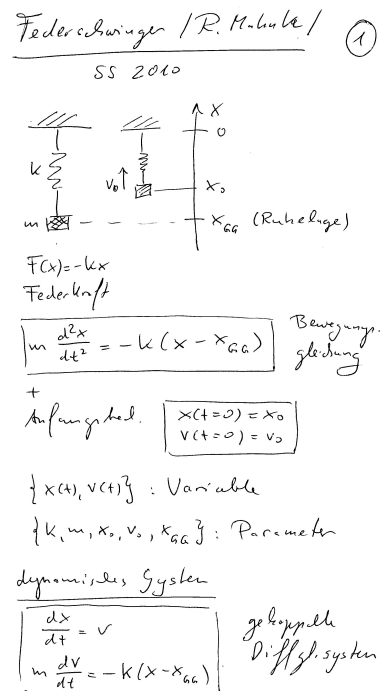 Federschwinger /R. Mahnke/ 1
SS 2010
x
0
k
v₀
x₀
m
x_GG (Ruhelage)
F(x)=-kx
Federkraft
m d²x/dt² = -k(x - x_GG)
Bewegungs-
gleichung
+
Anfangsbed.
x(t=0) = x₀
v(t=0) = v₀
{x(t), v(t)} : Variable
{k, m, x₀, v₀, x_GG} : Parameter
dynamisches System
dx/dt = v
m dv/dt = -k(x-x_GG)
gekoppelte
Diffglsystem